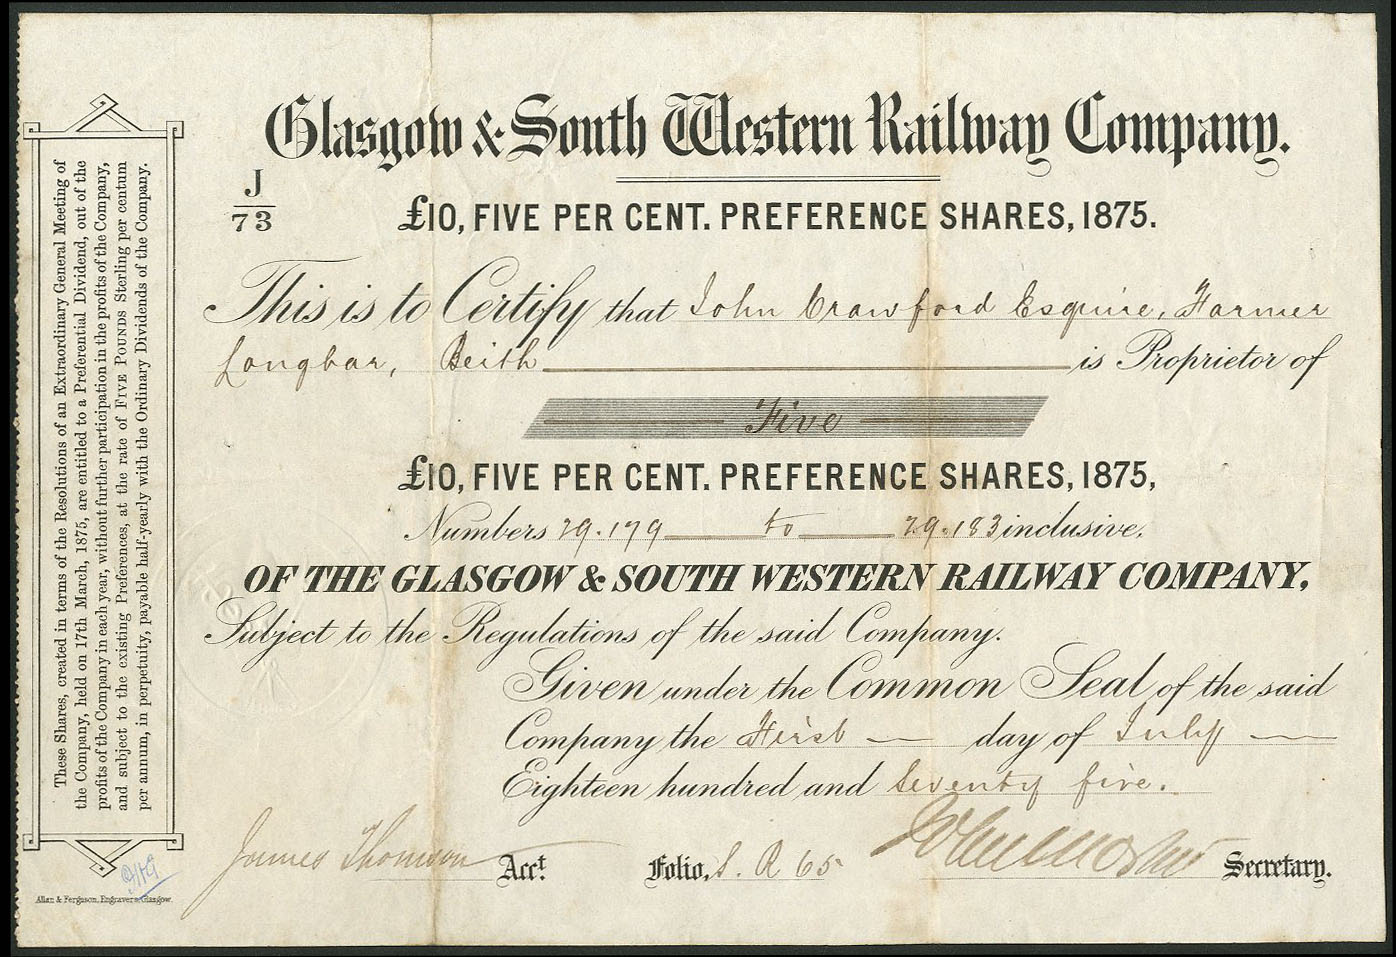 Glasgow & South Western Railway Company.
J
73
£10, FIVE PER CENT. PREFERENCE SHARES, 1875.
This is to Certify that John Crawford Esquire, Farmer
Longbar, Beith is Proprietor of
Five
£10, FIVE PER CENT. PREFERENCE SHARES, 1875,
Numbers 29.179 to 29.183 inclusive,
OF THE GLASGOW & SOUTH WESTERN RAILWAY COMPANY,
Subject to the Regulations of the said Company.
Given under the Common Seal of the said
Company the First day of July
Eighteen hundred and Seventy five.
James Thomson Acct. Folio, S. R 65 Secretary.
These Shares, created in terms of the Resolutions of an Extraordinary General Meeting of
the Company, held on 17th March, 1875, are entitled to a Preferential Dividend, out of the
profits of the Company in each year, without further participation in the profits of the Company,
and subject to the existing Preferences, at the rate of FIVE POUNDS Sterling per centum
per annum, in perpetuity, payable half-yearly with the Ordinary Dividends of the Company.
Allan & Ferguson, Engravers, Glasgow.